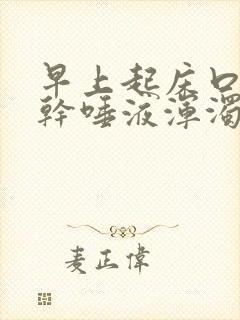 早上起床口
幹唾液渾濁
麦正偉